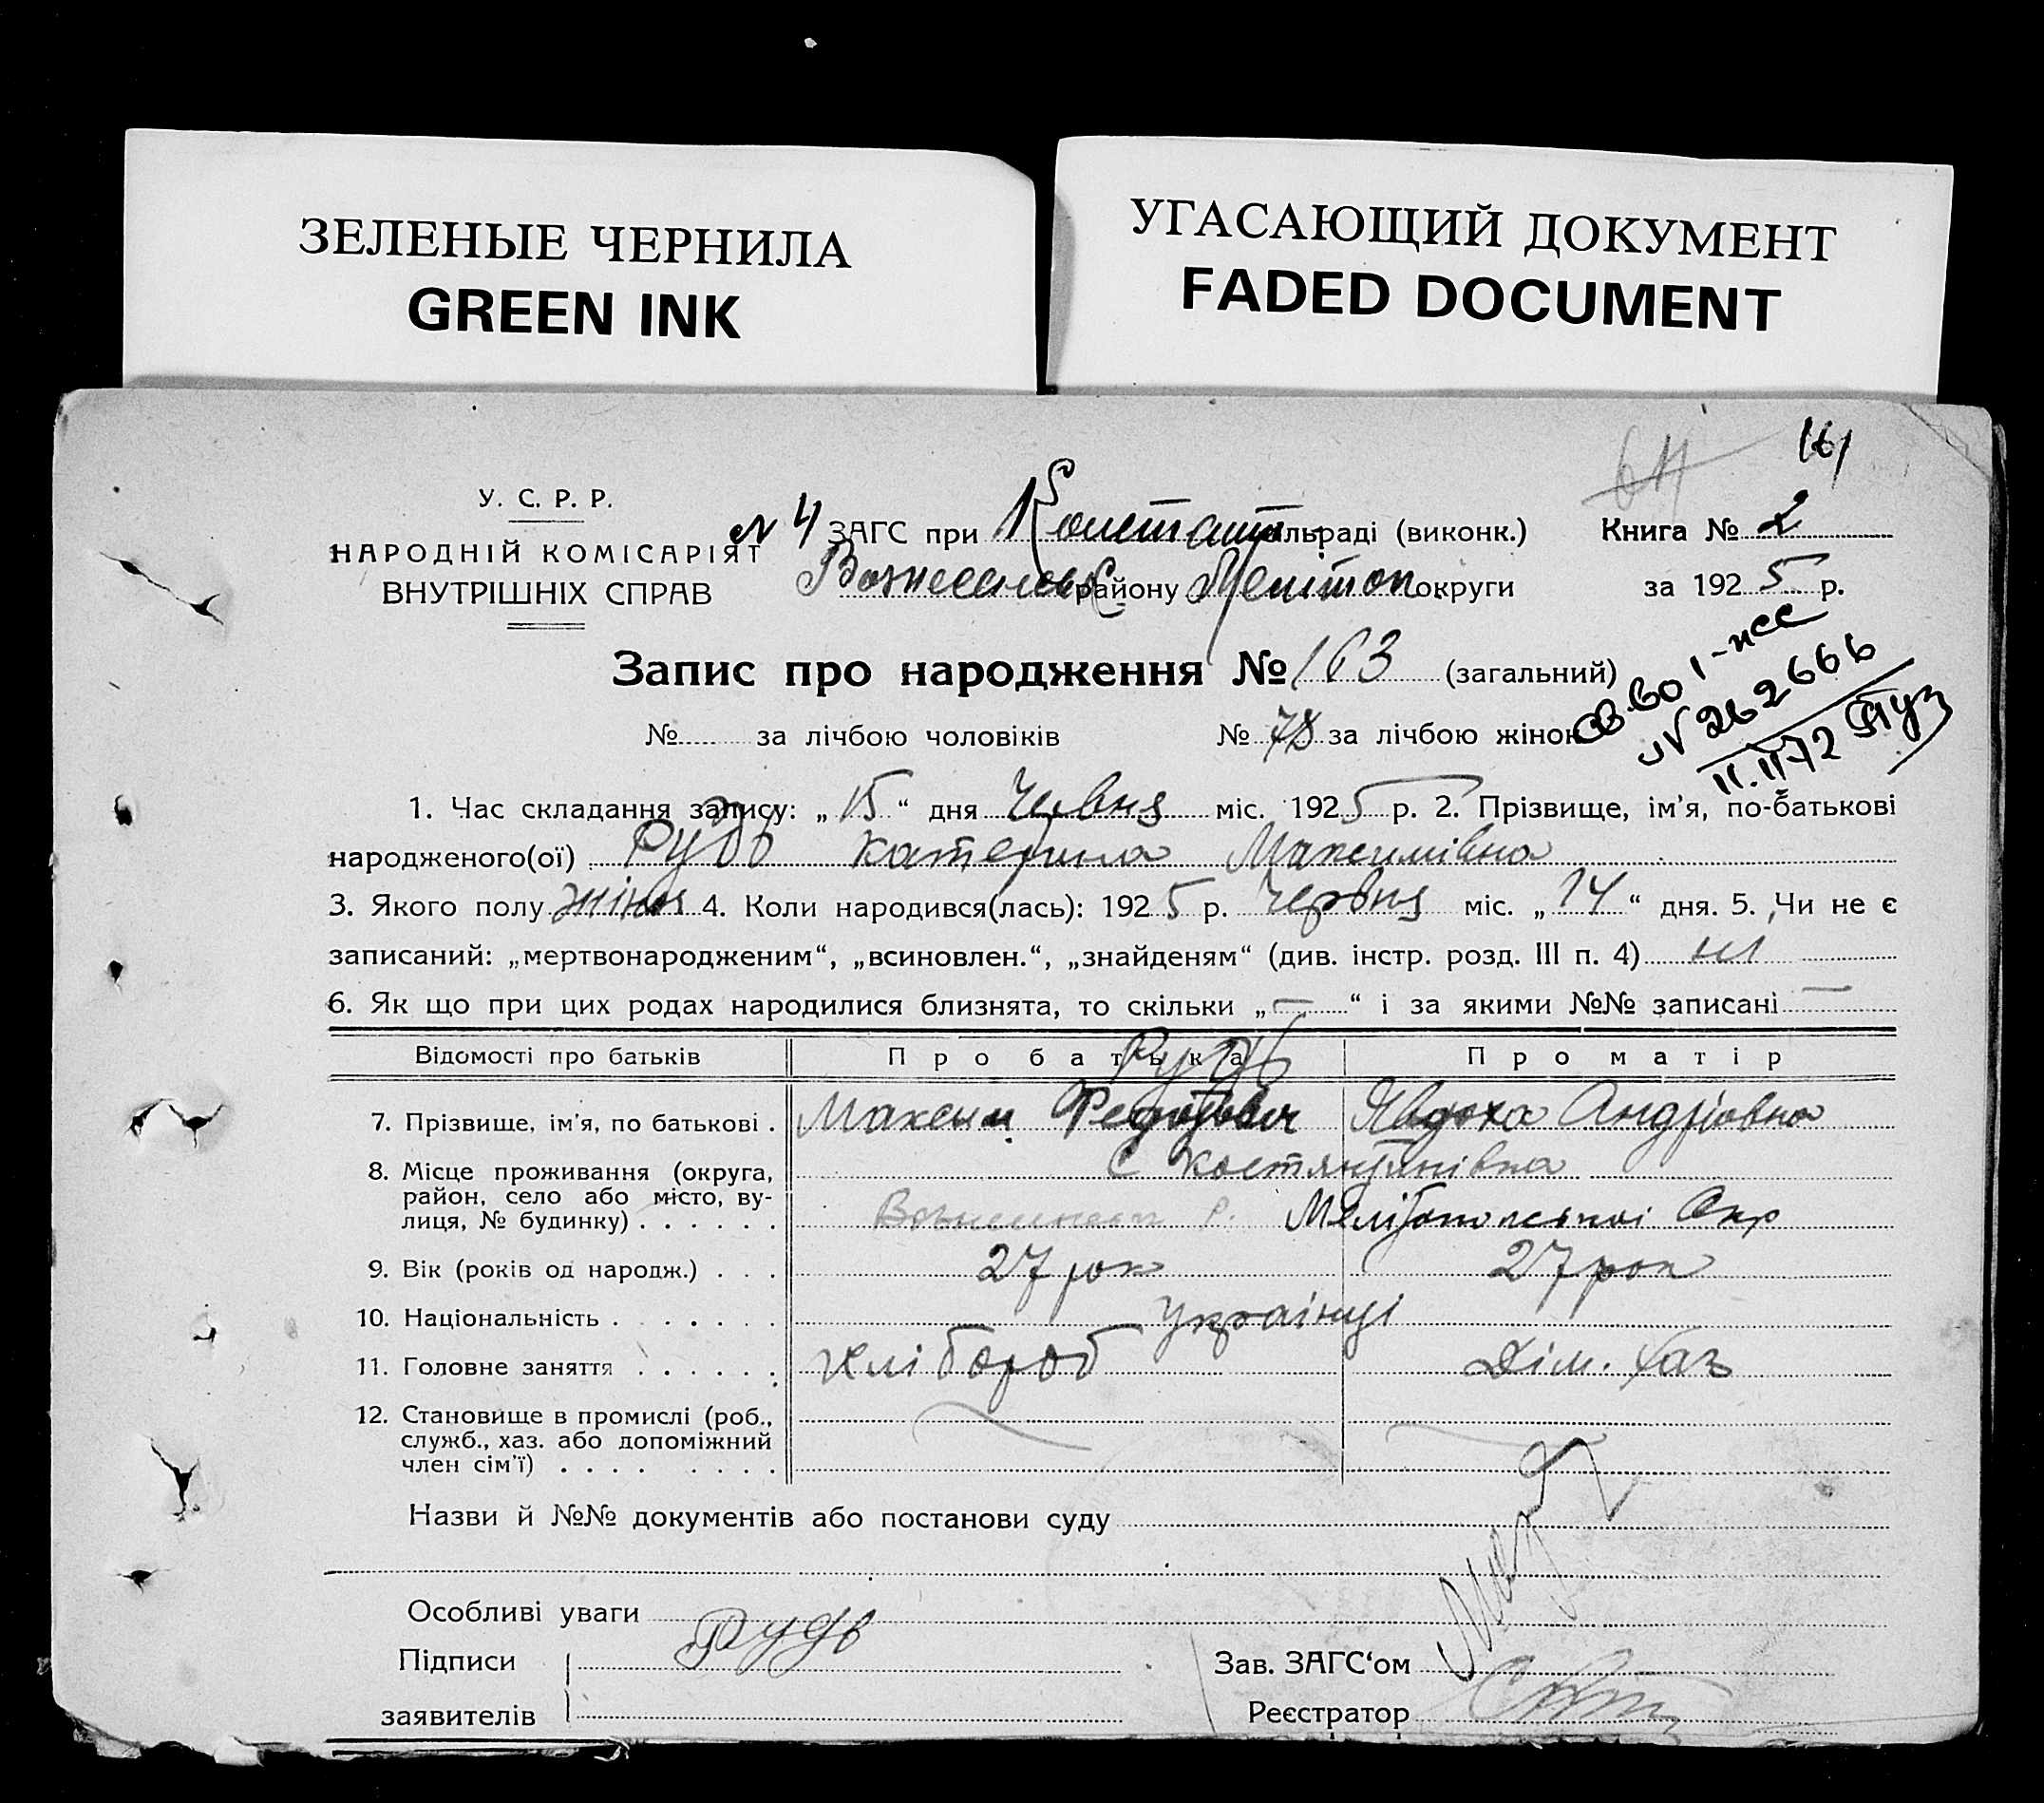 ЗЕЛЕНЫЕ ЧЕРНИЛА
GREEN INK
УГАСАЮЩИЙ ДОКУМЕНТ
FADED DOCUMENT
161
64
У. С. Р. Р.
НАРОДНІЙ КОМІСАРІЯТ
ВНУТРІШНІХ СПРАВ
N 4 ЗАГС при Констант ільраді (виконк.)
Книга № 2
Вознесенськ району Мелітоп округи
за 1925 р.
Запис про народження № 163 (загальний)
№ за лічбою чоловіків
№ 78 за лічбою жінок
св-во I-
N 262666
11.II 72
1. Час складання запису: „15“ дня Червня міс. 1925 р. 2. Прізвище, ім’я, по-батькові
народженого(ої) Рудь Катерина Максимівна
3. Якого полу жіноч 4. Коли народився(лась): 1925 р. Червня міс. „14“ дня. 5. Чи не є
записаний: „мертвонародженим“, „всиновлен.“, „знайденям“ (див. інстр. розд. III п. 4) ні
6. Як що при цих родах народилися близнята, то скільки „—“ і за якими №№ записані —
Відомості про батьків Про батька Про матір
Рудь
7. Прізвище, ім’я, по батькові . Максим Федотович Явдоха Андріовна
8. Місце проживання (округа, район, село або місто, вулиця, № будинку) . . . . . . С Костянтинівка
Р. Мелітопольської Окр
9. Вік (років од народж.) . . . 27 рок 27 рок
10. Національність . . . . . . . українці
11. Головне заняття . . . . . . Хлібороб Дім. Хаз
12. Становище в промислі (роб.,
служб., хаз. або допоміжний
член сім’ї) . . . . . . . .
Назви й №№ документів або постанови суду
Особливі уваги
Підписи Рудь
Зав. ЗАГС‘ом
заявителів
Реєстратор